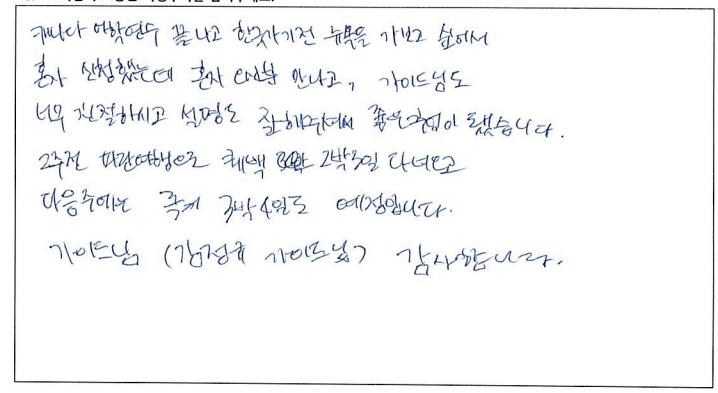 캐나다 어학연수 끝나고 한국가기전 뉴욕을 가보고 싶어서
혼자 신청했는데 혼자 오신분 만나고, 가이드님도
너무 친절하시고 설명도 잘해주셔서 좋은추억이 됐습니다.
2주전 파란여행으로 퀘백 2박3일 다녀오고
다음주에는 록키 3박4일도 예정입니다.
가이드님 (김정호 가이드님) 감사합니다.